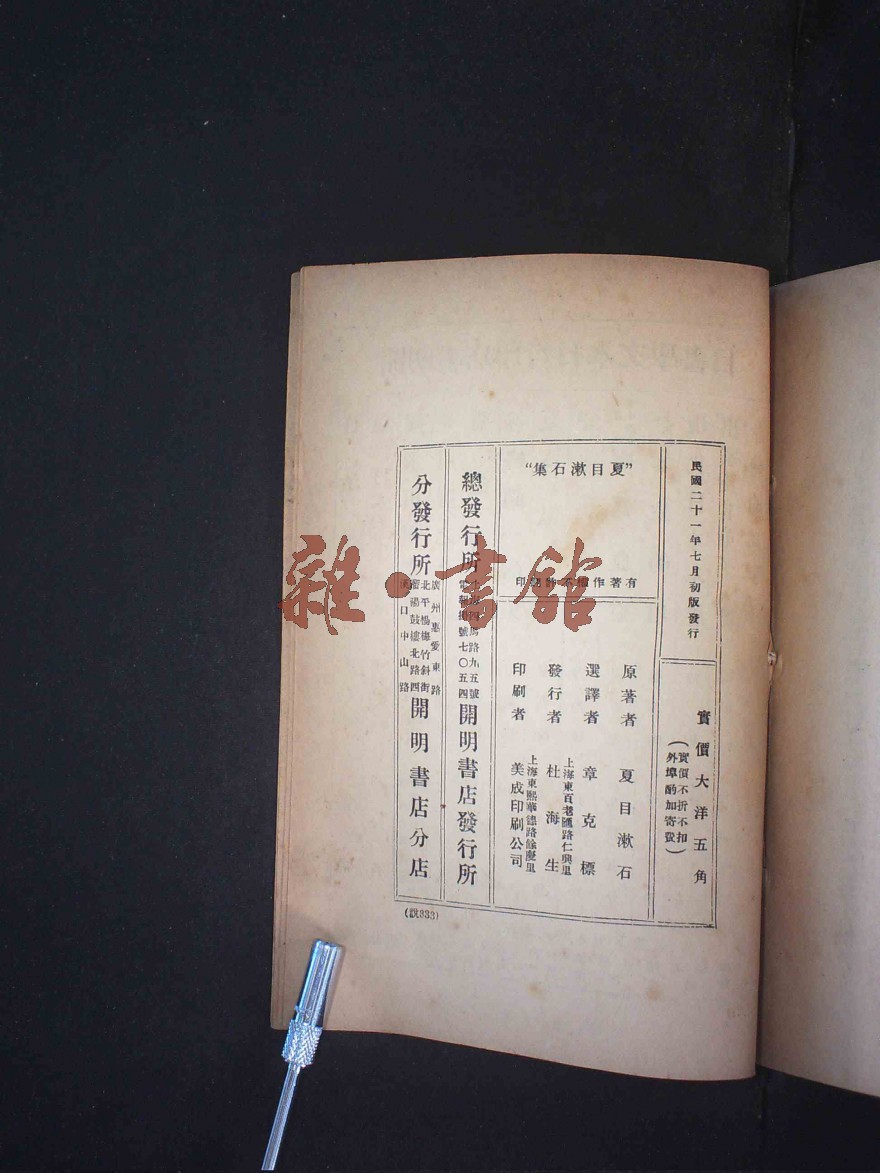 民國二十一年七月初版發行
實價大洋五角
(實價不折不扣
外埠酌加寄費)
"夏目漱石集"
有著作權不許翻印
原著者 夏目漱石
選譯者 章克標
發行者 上海東百老匯路仁興里
杜海生
印刷者 上海東熙華德路餘慶里
美成印刷公司
總發行所
四馬路九五號
電報掛號七〇五四
開明書店發行所
分發行所
廣州惠愛東路
北平楊梅竹斜街
瀋陽鼓樓北路四
漢口中山路
開明書店分店
(說333)
雜·書館